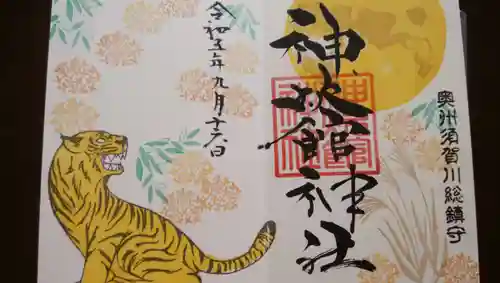 奥州須賀川総鎮守
神炊館神社
令和五年九月十六日